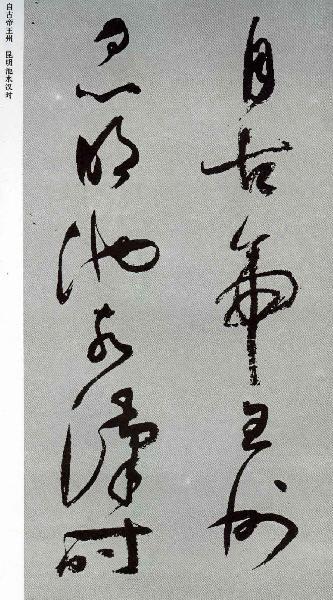 自古帝王州
昆明池水漢时
自古帝王州 昆明池水汉时